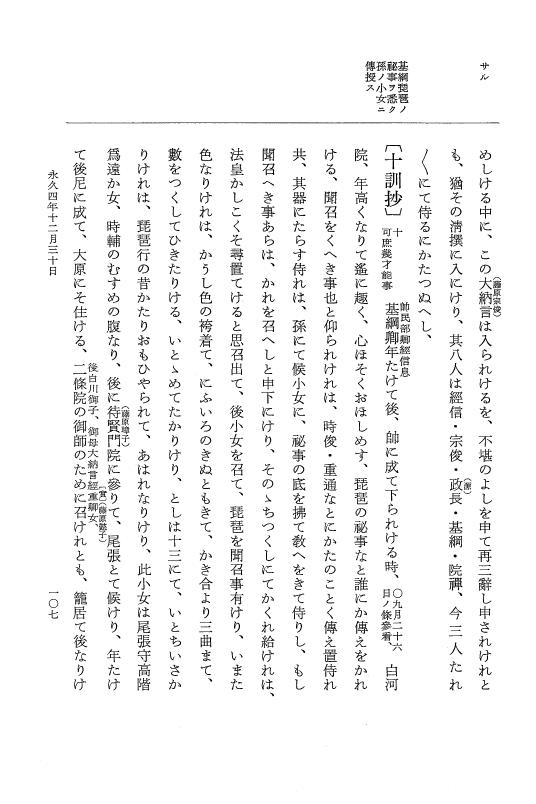 サル
基綱琵琶ノ
祕事ヲ悉ク
孫ノ小女ニ
傳授ス
めしける中に、この大納言は入られけるを、不堪のよしを申て再三辭し申されけれと
(藤原宗俊)
も、猶その淸撰に入にけり、其八人は經信・宗俊・政長・基綱・院禪、今三人たれ
(源)
〳〵にて侍るにかたつぬへし、
〔十訓抄〕 十 可庶幾才能事 基綱卿年たけて後、帥に成て下られける時、 〇九月二十六日ノ條參看、 白河
帥民部卿經信息
院、年高くなりて遙に趣く、心ほそくおほしめす、琵琶の祕事なと誰にか傳えをかれ
ける、聞召をくへき事也と仰られけれは、時俊・重通なとにかたのことく傳え置侍れ
共、其器にたらす侍れは、孫にて候小女に、祕事の底を拂て敎へをきて侍りし、もし
聞召へき事あらは、かれを召へしと申下にけり、そのゝちつくしにてかくれ給けれは、
法皇かしこくそ尋置てけると思召出て、後小女を召て、琵琶を聞召事有けり、いまた
色なりけれは、かうし色の袴着て、にふいろのきぬともきて、かき合より三曲まて、
數をつくしてひきたりける、いとゝめてたかりけり、としは十三にて、いとちいさか
りけれは、琵琶行の昔かたりおもひやられて、あはれなりけり、此小女は尾張守高階
爲遠か女、時輔のむすめの腹なり、後に待賢門院に參りて、尾張とて候けり、年たけ
(藤原璋子)
て後尼に成て、大原にそ住ける、二條院の御師のために召けれとも、籠居て後なりけ
後白川御子、御母大納言經重卿女、
〔實〕(藤原懿子)
永久四年十二月三十日
一〇七